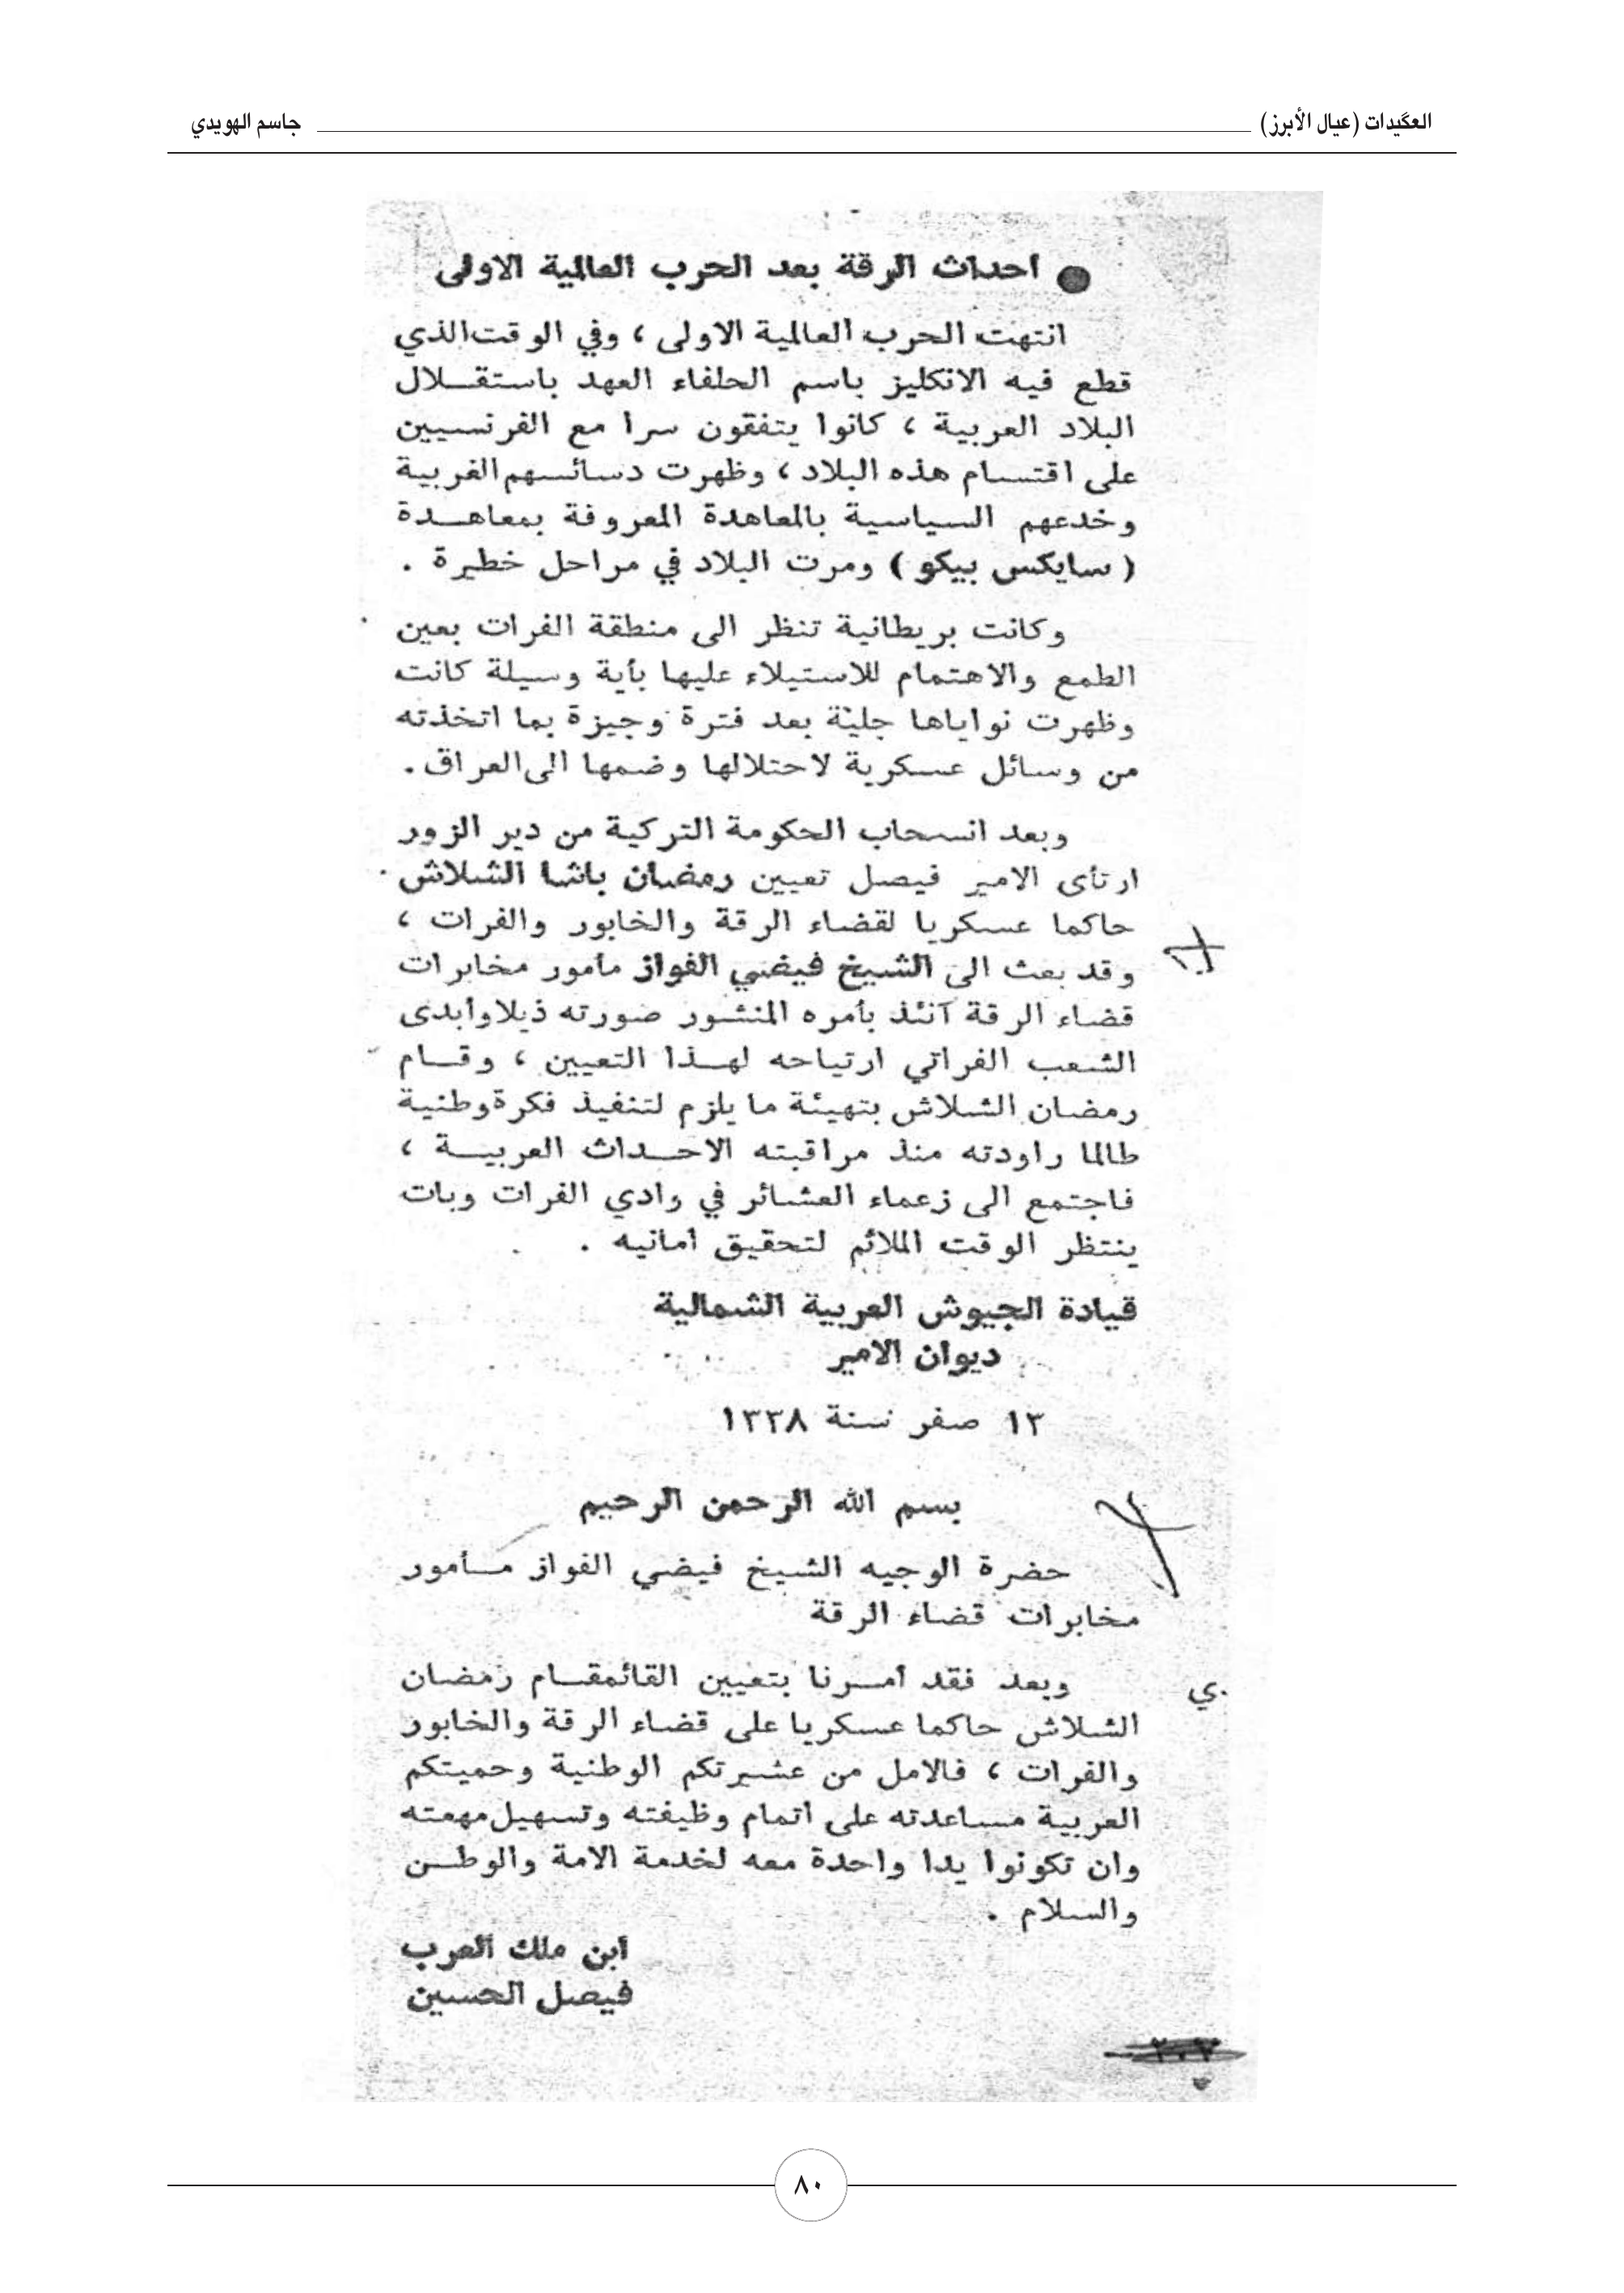 العگيدات (عيال الأبرز) جاسم الهويدي
● احداث الرقة بعد الحرب العالمية الاولى
انتهت الحرب العالمية الاولى ، وفي الوقت الذي
قطع فيه الانكليز باسم الحلفاء العهد باستقلال
البلاد العربية ، كانوا يتفقون سرا مع الفرنسيين
على اقتسام هذه البلاد ، وظهرت دسائسهم الغربية
وخدعهم السياسية بالمعاهدة المعروفة بمعاهدة
( سايكس بيكو ) ومرت البلاد في مراحل خطيرة .
وكانت بريطانية تنظر الى منطقة الفرات بعين
الطمع والاهتمام للاستيلاء عليها بأية وسيلة كانت
وظهرت نواياها جلية بعد فترة وجيزة بما اتخذته
من وسائل عسكرية لاحتلالها وضمها الى العراق .
وبعد انسحاب الحكومة التركية من دير الزور
ارتأى الامير فيصل تعيين رمضان باشا الشلاش
حاكما عسكريا لقضاء الرقة والخابور والفرات ،
وقد بعث الى الشيخ فيضي الفواز مأمور مخابرات
قضاء الرقة آنئذ بأمره المنشور صورته ذيلا وأبدى
الشعب الفراتي ارتياحه لهذا التعيين ، وقام
رمضان الشلاش بتهيئة ما يلزم لتنفيذ فكرة وطنية
طالما راودته منذ مراقبته الاحداث العربية ،
فاجتمع الى زعماء العشائر في وادي الفرات وبات
ينتظر الوقت الملائم لتحقيق أمانيه .
قيادة الجيوش العربية الشمالية
ديوان الامير
١٣ صفر سنة ١٣٣٨
بسم الله الرحمن الرحيم
حضرة الوجيه الشيخ فيضي الفواز مأمور
مخابرات قضاء الرقة
وبعد فقد أمرنا بتعيين القائمقام رمضان
ي
الشلاش حاكما عسكريا على قضاء الرقة والخابور
والفرات ، فالامل من عشيرتكم الوطنية وحميتكم
العربية مساعدته على اتمام وظيفته وتسهيل مهمته
وان تكونوا يدا واحدة معه لخدمة الامة والوطن
والسلام .
ابن ملك العرب
فيصل الحسين
٨٠